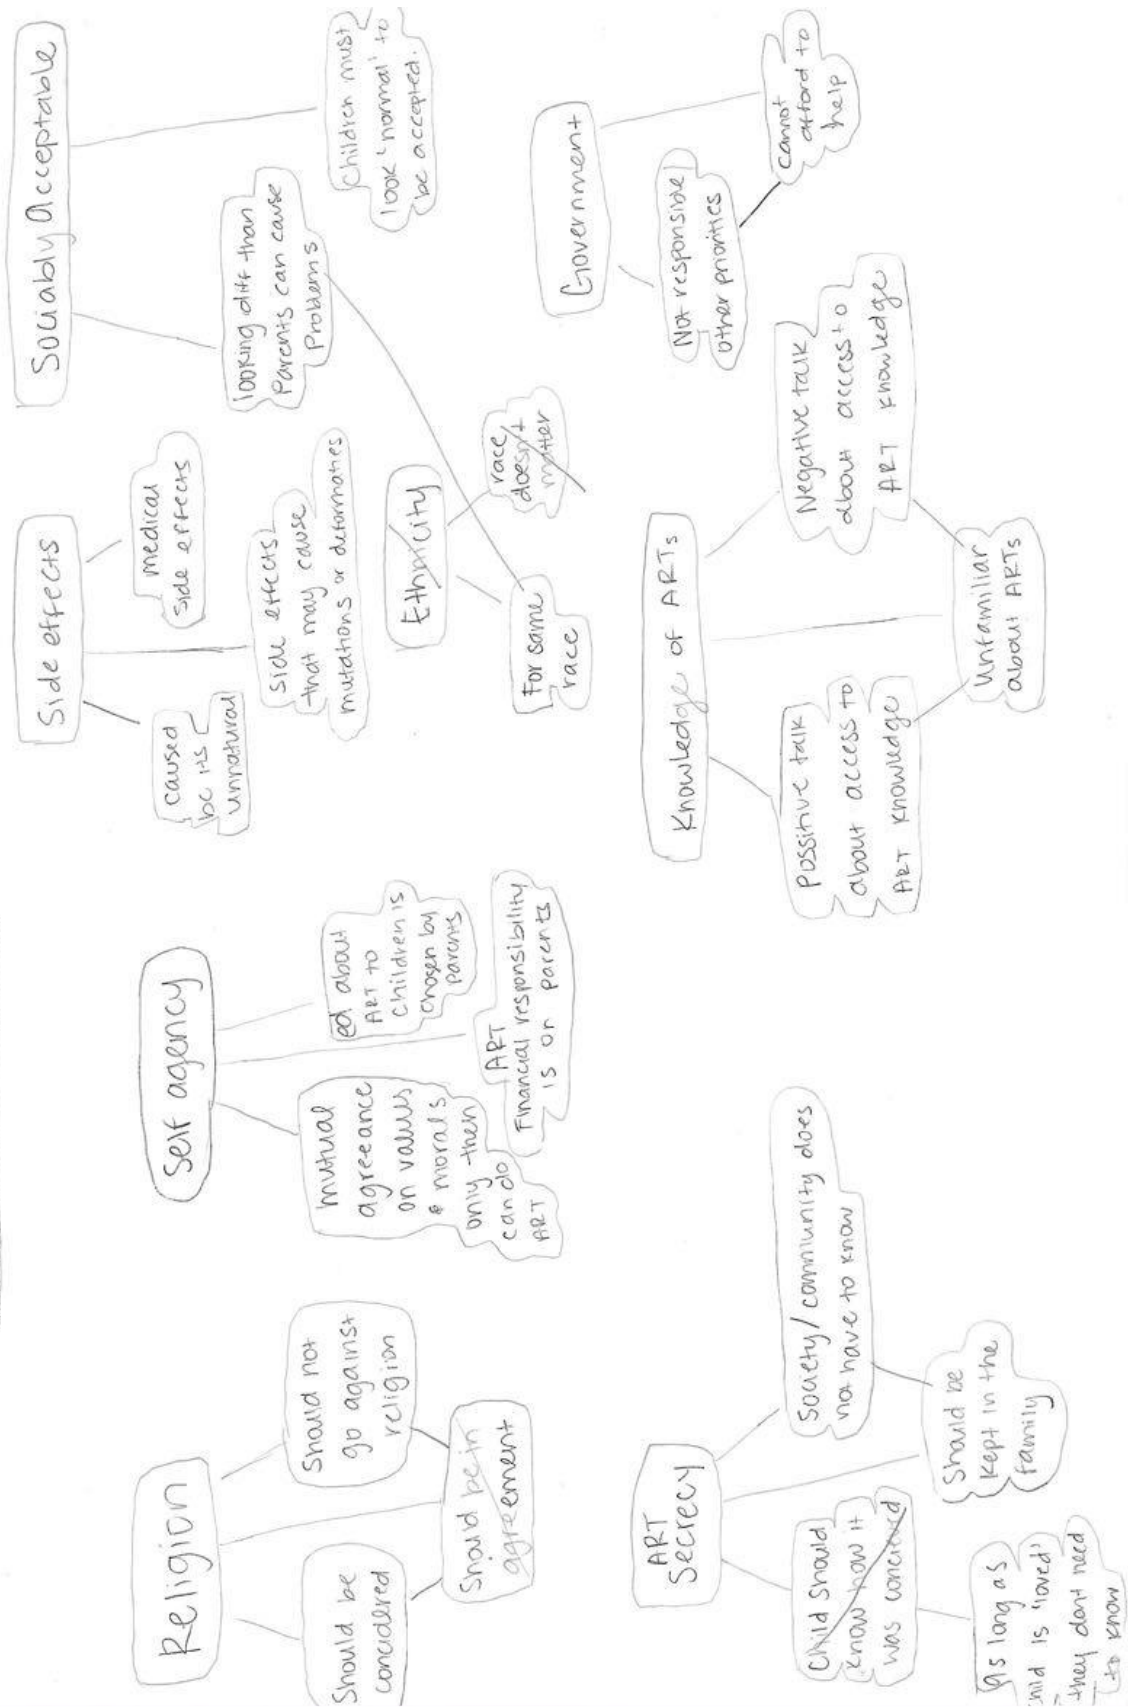 Religion
Should be
concidered
Should not
go against
religion
Should be in
agreement
Self agency
mutual
agreeance
on values
& morals
only then
can do
ART
ed about
ART to
children is
chosen by
parents
ART
Financial responsibility
is on parents
Side effects
caused
be its
unnatural
medical
side effects
side effects
that may cause
mutations or deformaties
Sociably Acceptable
looking diff than
Parents can cause
Problems
Children must
look 'normal' to
be accepted.
Ethnicity
For same
race
race
doesn't
matter
ART
Secrecy
Child should
know how it
was concieved
as long as
child is 'loved'
they dont need
to know
Should be
kept in the
family
society/community does
not have to know
Knowledge of ARTs
Possitive talk
about access to
ART knowledge
Negative talk
about access to
ART knowledge
Unfamiliar
about ARTs
Government
Not responsible
other priorities
cannot
afford to
help